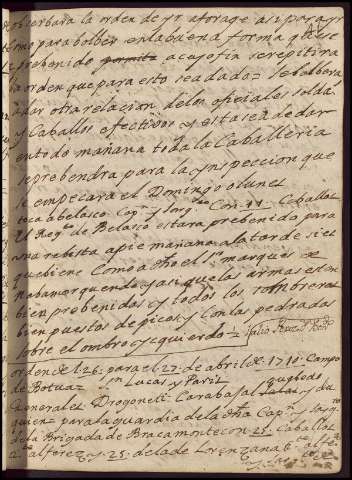 observara la orden de yr aforage asi para yr
como para bolber en la buena forma que se
a prebenido permita acuyo fin se repitira
la orden que para esto sea dado = se bolbera
a dar otra relacion de los oficiales soldados
y Caballos efectivos y esta sea de dar
entodo mañana toda la Caballeria
se prebendra para la ynspeccion que
se empezara el Domingo o lunes
toca abelasco Capn y sargto Con 11 Caballos
El Regto de Belasco estara prebenido para
una rebista apie mañana alatarde si el
que biene Como a dho el Sr marques de
y que las armas esten
bien probenidas y todos los sombreros
bien puestos de picos y con las pedradas
sobre el ombro yzquierdo =
orden del 26 para el 27 de abril de 1710 Campo
de Botua = Sn Lucas y Paris
Generales Drogoneli Carabajal y du
quien para la guardia de la dha Capn y sargto
de la Brigada de Bracamonte con 25 Caballos
alferez y 25 de la de Lorenzana